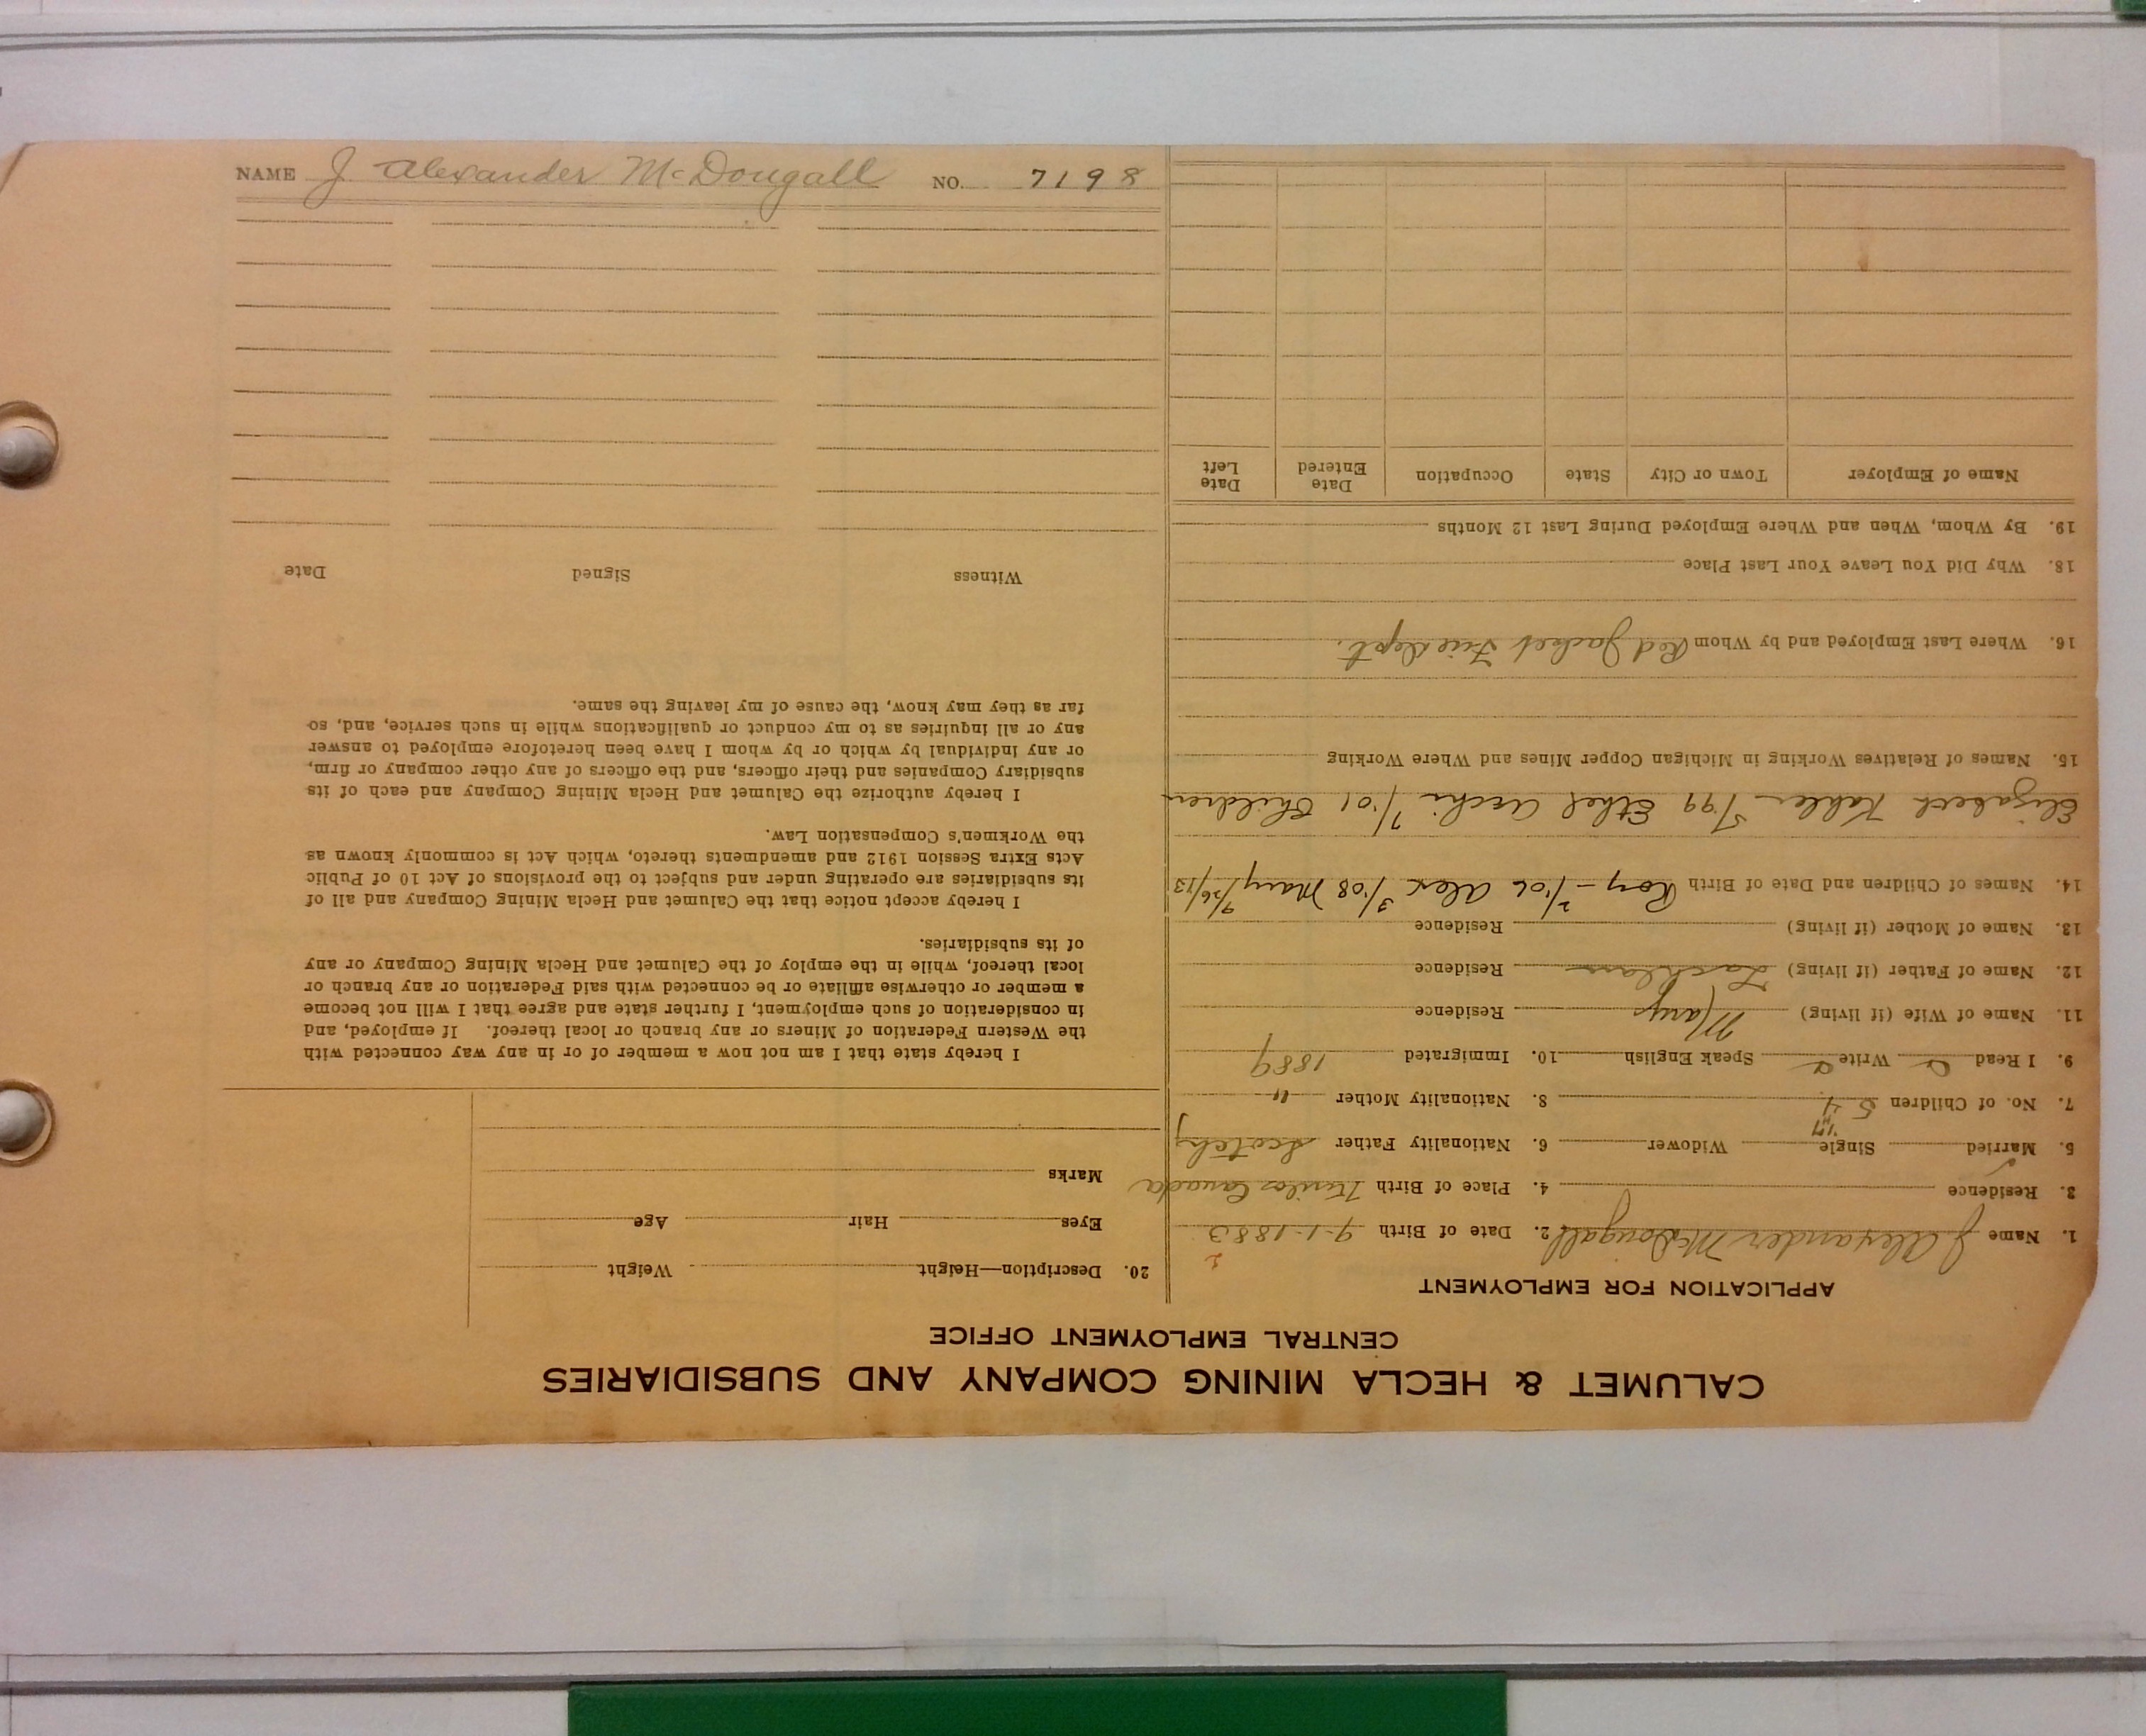 NAME J Alexander McDougall NO. 7198
CALUMET & HECLA MINING COMPANY AND SUBSIDIARIES
CENTRAL EMPLOYMENT OFFICE
APPLICATION FOR EMPLOYMENT
1. Name J Alexander McDougall 2. Date of Birth 9-1-1883
2
3. Residence 4. Place of Birth Canada
5. Married Single Widower 6. Nationality Father Scotch
7. No. of Children 5 4 8. Nationality Mother "
9. I Read Write Speak English 10. Immigrated 1889
11. Name of Wife (if living) Mary Residence
12. Name of Father (if living) Residence
13. Name of Mother (if living) Residence
14. Names of Children and Date of Birth Roy - 2/06 Alex 3/08 Mary 9/26/13
Elizabeth 5/99 Ethel 7/01 Children
15. Names of Relatives Working in Michigan Copper Mines and Where Working
16. Where Last Employed and by Whom Red Jacket Fire Dept.
18. Why Did You Leave Your Last Place
19. By Whom, When and Where Employed During Last 12 Months
Name of Employer Town or City State Occupation Date Entered Date Left
20. Description—Height Weight
Eyes Hair Age
Marks
I hereby state that I am not now a member of or in any way connected with
the Western Federation of Miners or any branch or local thereof. If employed, and
in consideration of such employment, I further state and agree that I will not become
a member or otherwise affiliate or be connected with said Federation or any branch or
local thereof, while in the employ of the Calumet and Hecla Mining Company or any
of its subsidiaries.
I hereby accept notice that the Calumet and Hecla Mining Company and all of
its subsidiaries are operating under and subject to the provisions of Act 10 of Public
Acts Extra Session 1912 and amendments thereto, which Act is commonly known as
the Workmen's Compensation Law.
I hereby authorize the Calumet and Hecla Mining Company and each of its
subsidiary Companies and their officers, and the officers of any other company or firm,
or any individual by which or by whom I have been heretofore employed to answer
any or all inquiries as to my conduct or qualifications while in such service, and, so
far as they may know, the cause of my leaving the same.
Witness Signed Date